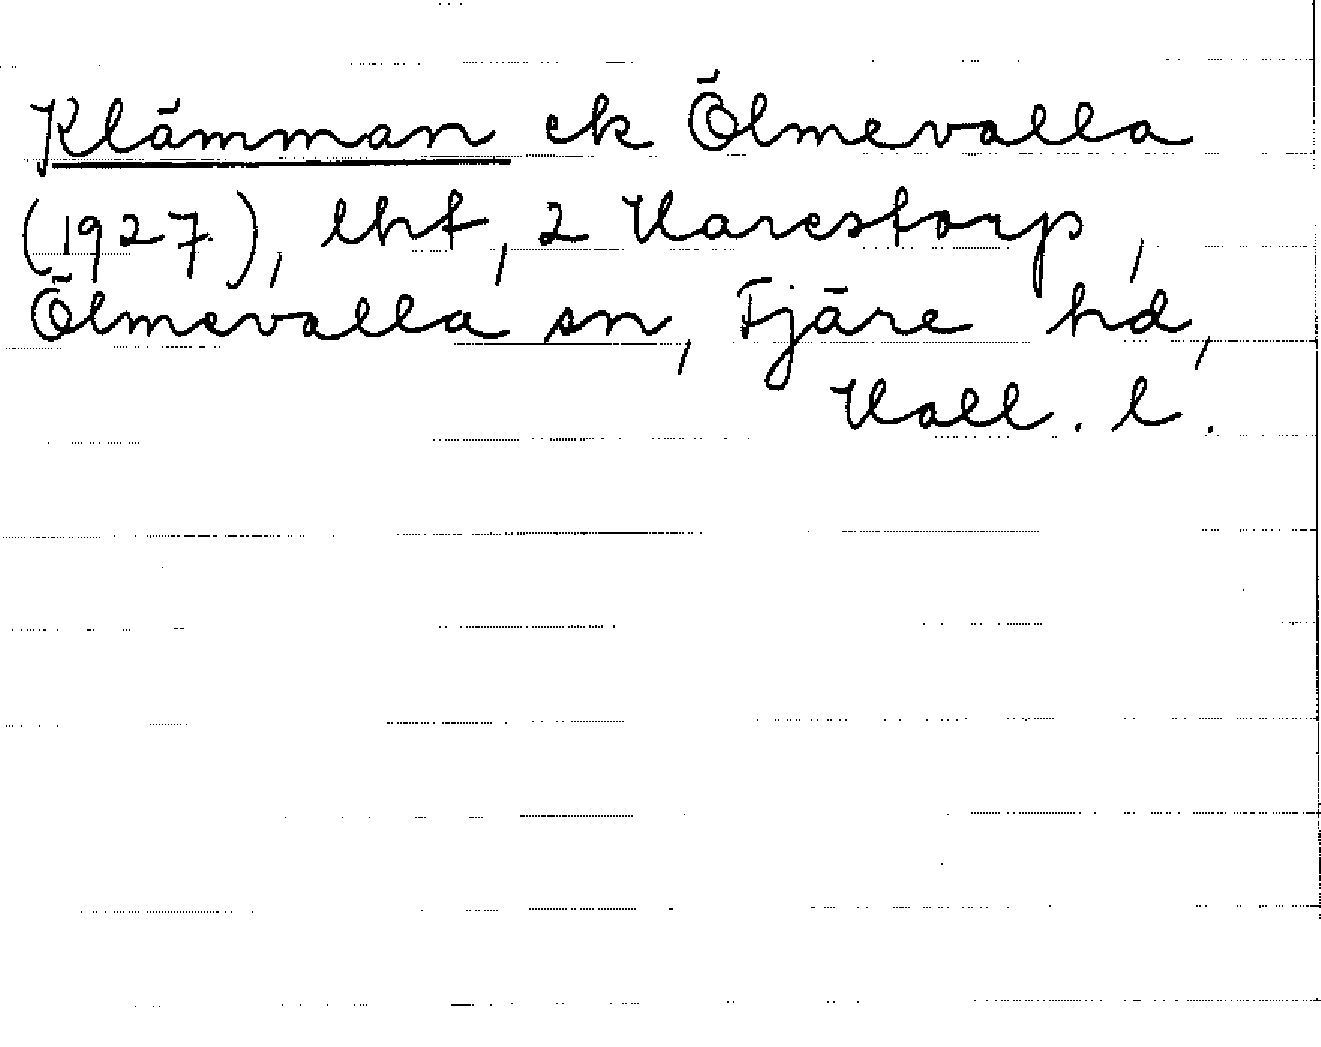 Klämman ek Ölmevalla
(1927), lht, 2 Varestorp,
Ölmevalla sn, Fjäre hd,
Hall. l.